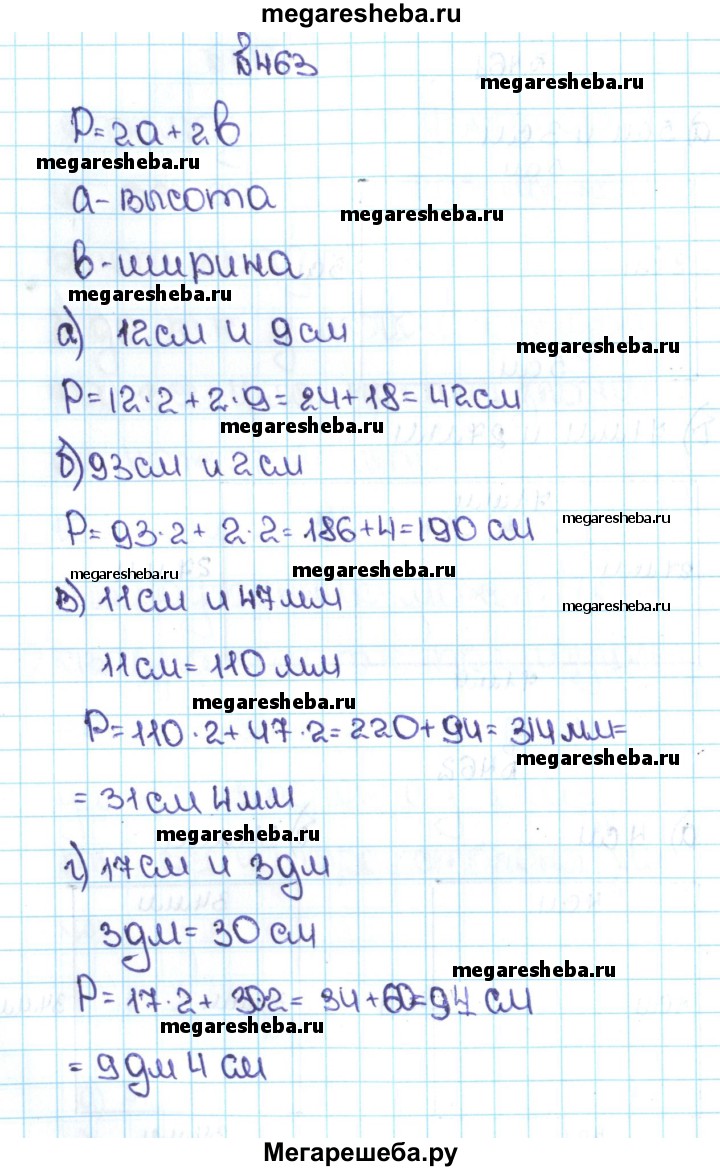 megaresheba.ru
№463
megaresheba.ru
P=2a+2b
megaresheba.ru
a-высота
megaresheba.ru
b-ширина
megaresheba.ru
а) 12см и 9см
megaresheba.ru
P=12·2+2·9=24+18=42см
megaresheba.ru
б) 93см и 2см
megaresheba.ru
P=93·2+2·2=186+4=190 см
megaresheba.ru
megaresheba.ru
в) 11см и 47мм
megaresheba.ru
11см=110мм
megaresheba.ru
P=110·2+47·2=220+94=314мм=
megaresheba.ru
=31см 4мм
megaresheba.ru
г) 17см и 3дм
3дм=30см
megaresheba.ru
P=17·2+30·2=34+60=94 см
megaresheba.ru
=9дм 4 см
Мегарешеба.ру